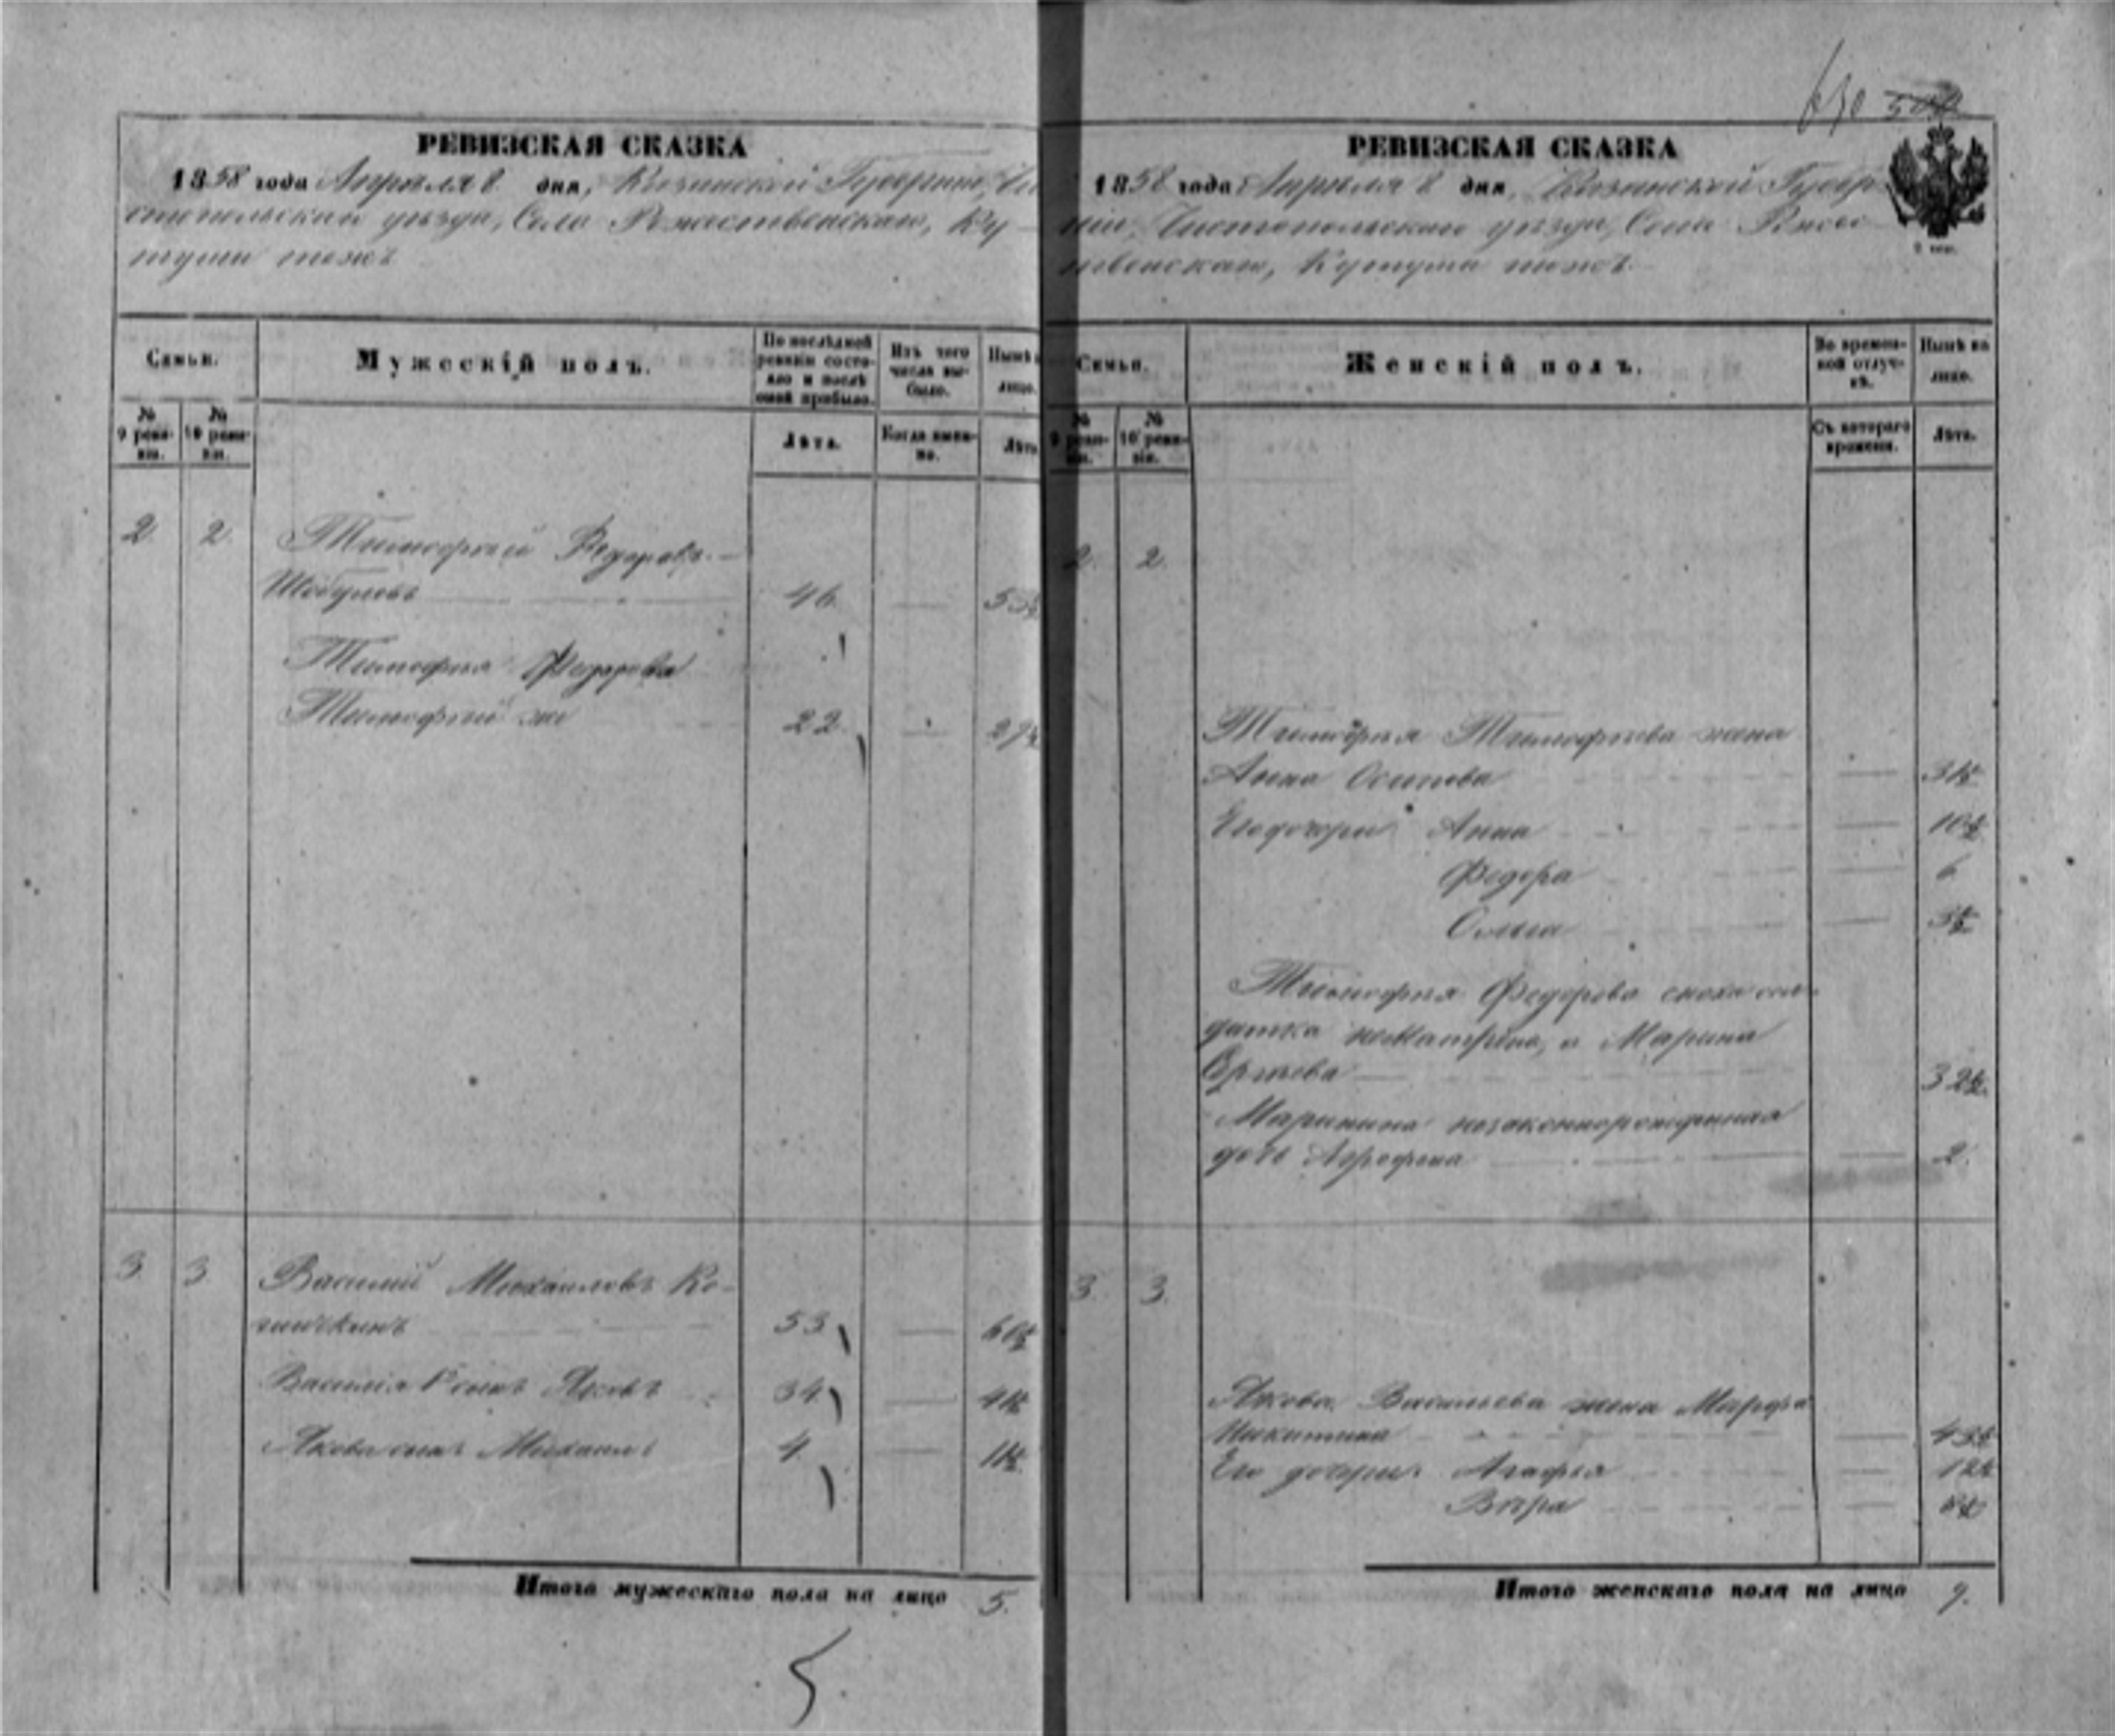 630 500
РЕВИЗСКАЯ СКАЗКА
1858 года Апреля 8 дня, Казанской Губерніи, Чи
стопольскаго уѣзда, Села Рожественскаго, Ку-
туши тожъ
Семьи.
Мужескій полъ.
По послѣдней ревизіи состояло и послѣ оной прибыло.
Изъ того числа выбыло.
Нынѣ на лицо.
№ 9 ревизіи.
№ 10 ревизіи.
Лѣта.
Когда именно.
Лѣта
2. 2. Тимофей Федоровъ
46. — 
Тимофея Федорова
Тимофей же 22. —
3. 3. Василий Михаиловъ Ко-
53 —
Василія 1й сынъ Яковъ 34 —
Якова сынъ Михаилъ 4 —
Итого мужескаго пола на лицо 5.
5.
РЕВИЗСКАЯ СКАЗКА
1858 года Апреля 8 дня, Казанской Губер
ніи, Чистопольскаго уѣзда, Села Рожес
твенскаго, Кутуши тожъ.
Семьи.
Женскій полъ.
Во временной отлучкѣ.
Нынѣ на лицо.
№ 9 ревизіи.
№ 10 ревизіи.
Съ котораго времени.
Лѣта.
2. 2.
Тимофея Тимофеева жена
Анна Осипова —
Его дочери Анна —
Федора — 6
Ольга —
Тимофея Федорова сноха сол-
датка Марина
—
Маринина незаконнорожденная
дочь — 2.
3. 3.
Якова Васильева жена Марфа
Никитина —
Его дочери Агафья —
Вѣра —
Итого женскаго пола на лицо 9.